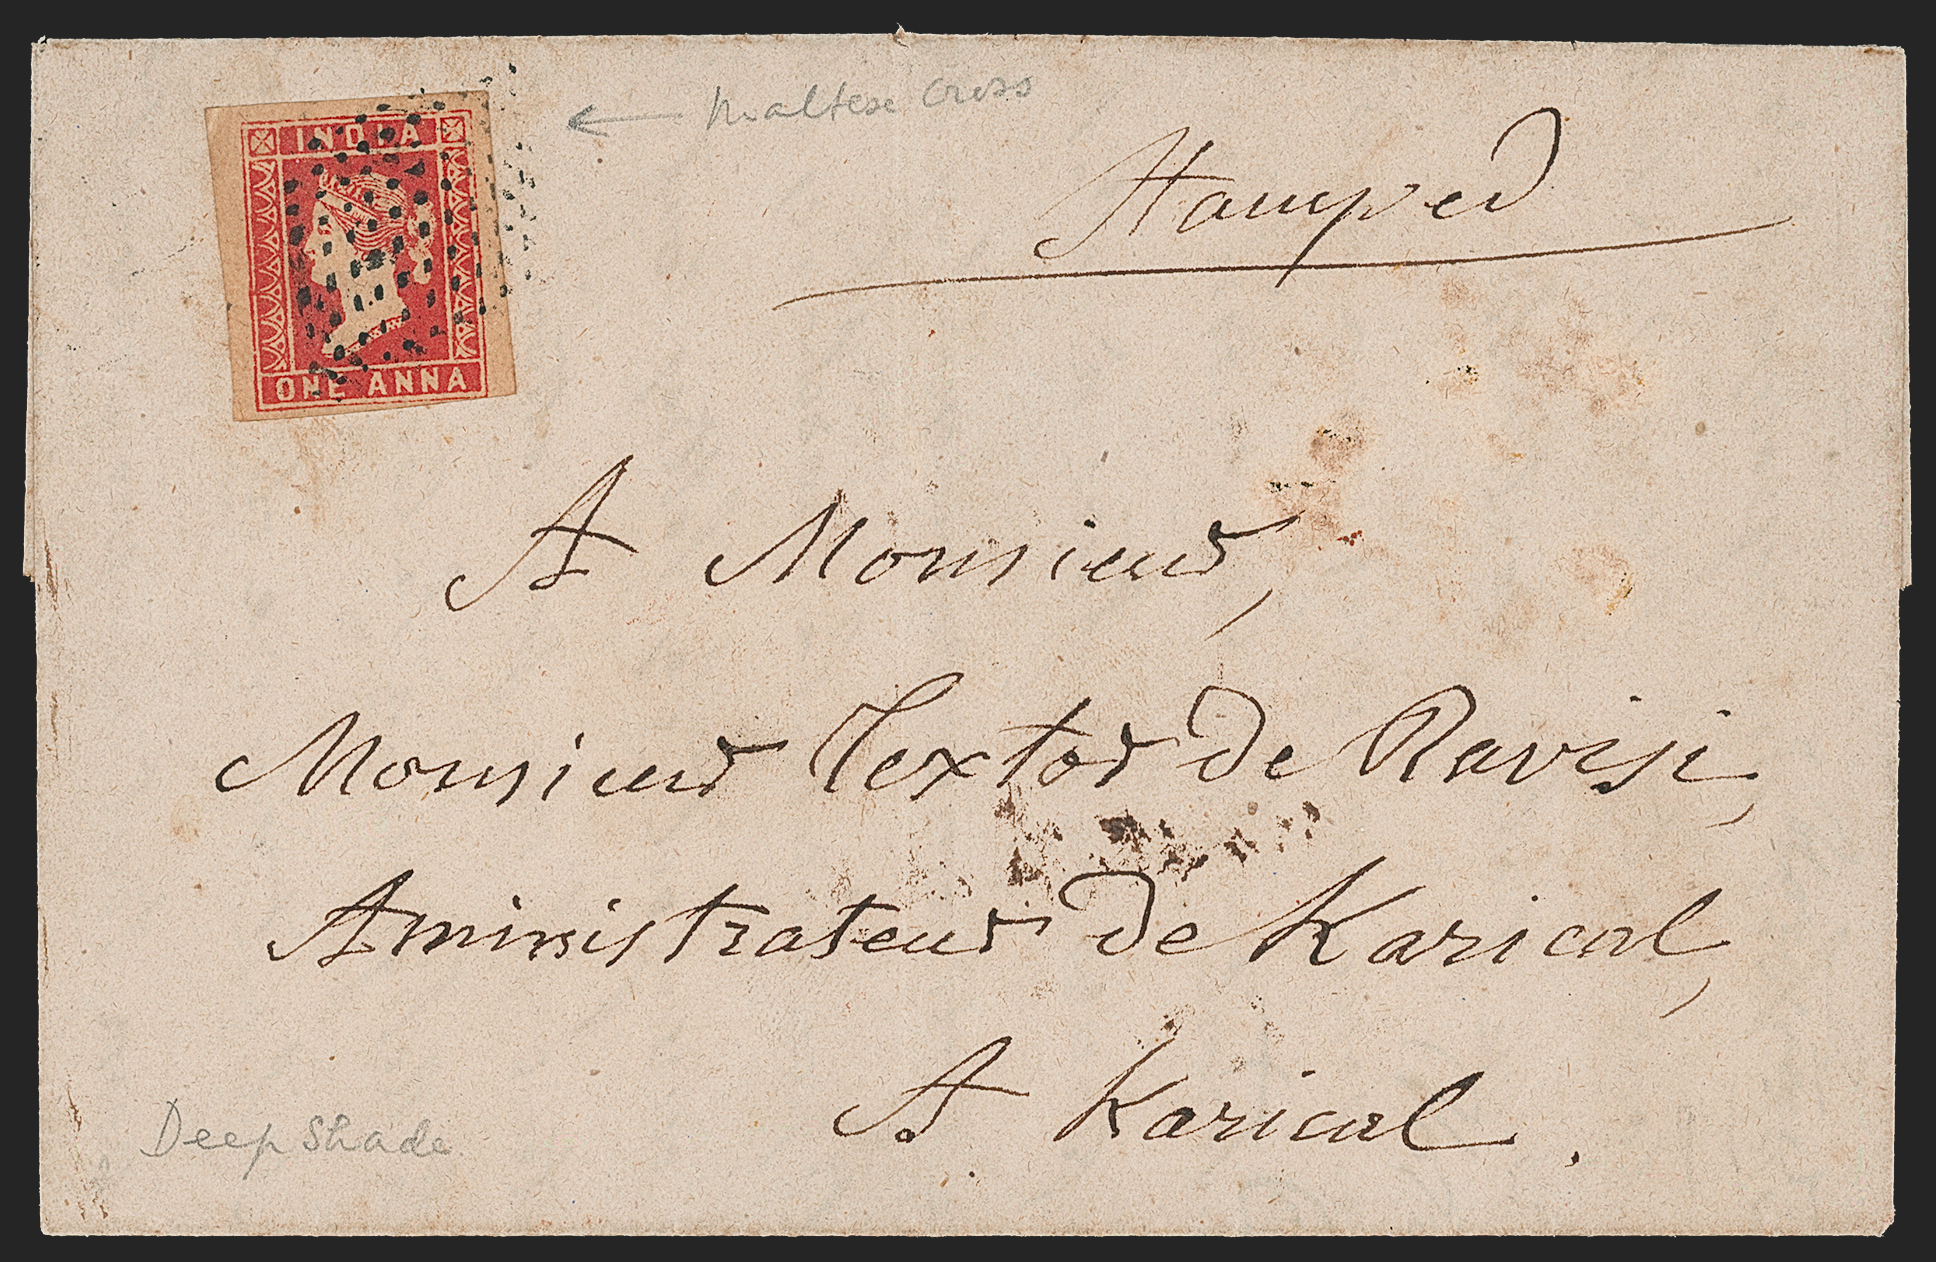 INDIA
ONE ANNA
Maltese Cross
Stamped
A Monsieur,
Monsieur Textor de Ravisi,
Aministrateur de Karical,
A Karical.
Deep Shade